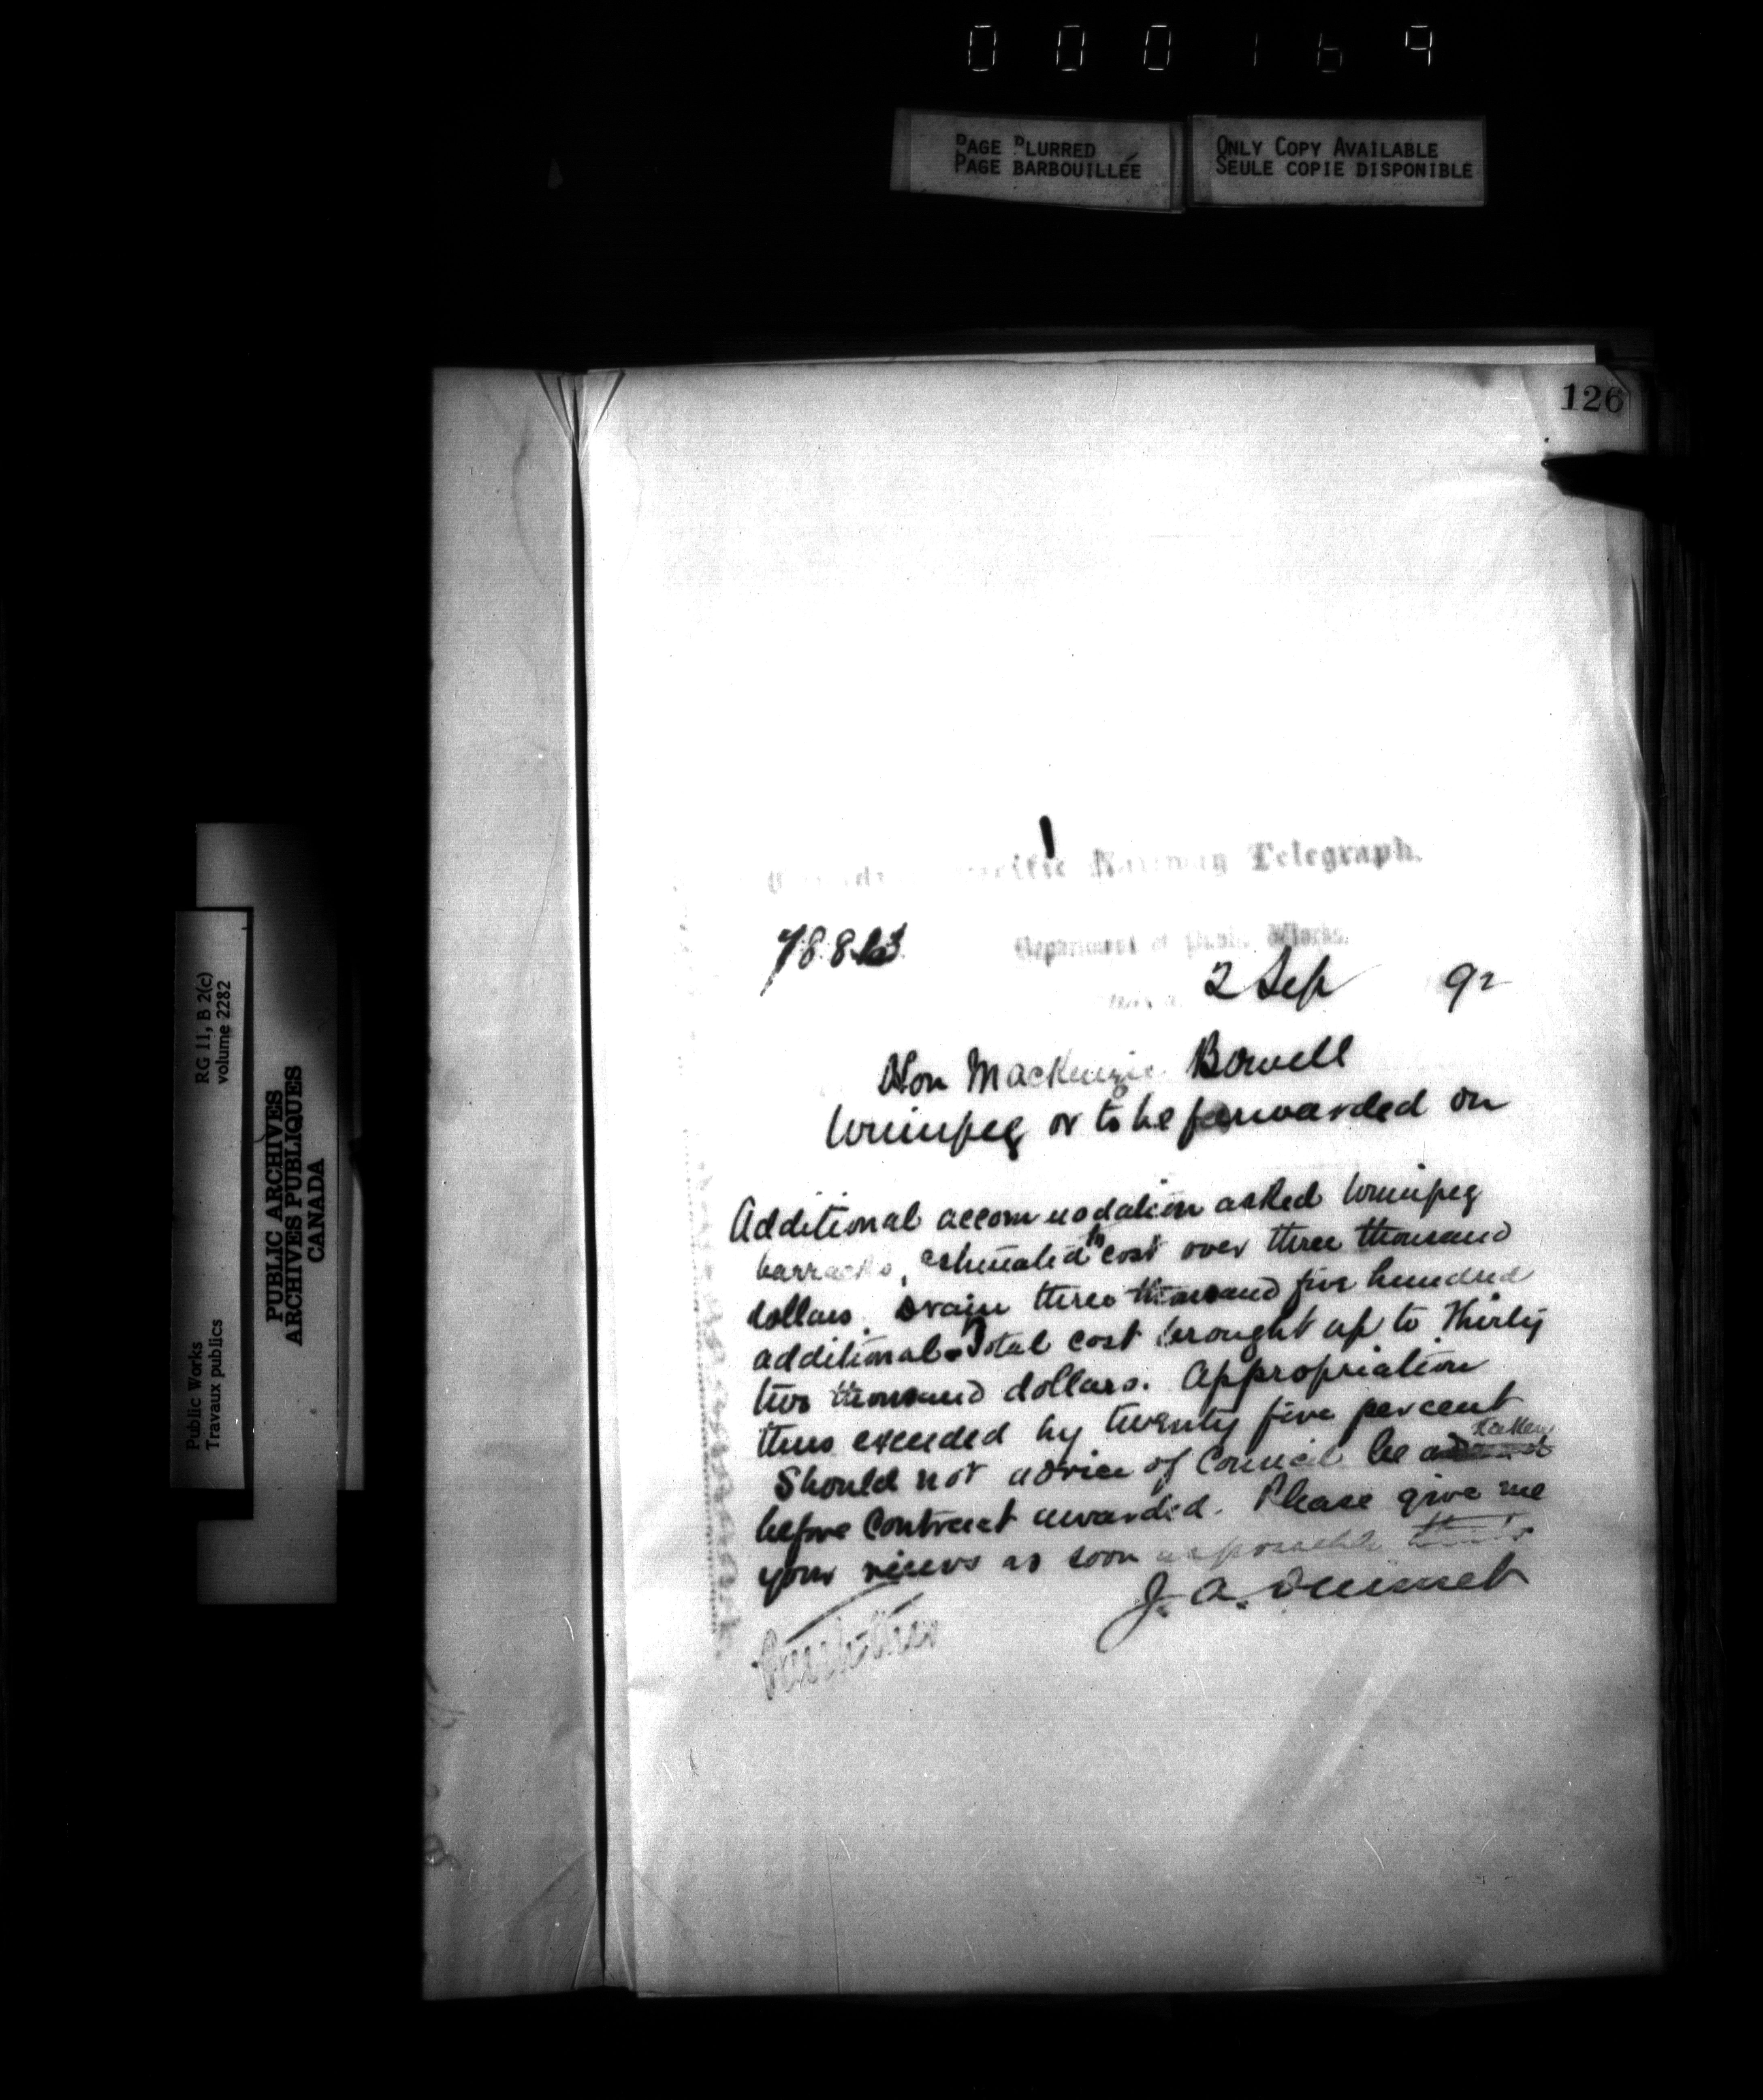 000169
PAGE BLURRED
PAGE BARBOUILLÉE
ONLY COPY AVAILABLE
SEULE COPIE DISPONIBLE
126
Public Works
Travaux publics
RG 11, B 2(c)
volume 2282
PUBLIC ARCHIVES
ARCHIVES PUBLIQUES
CANADA
Pacific Railway Telegraph.
Department of Public Works.
2 Sep 92
Hon MacKenzie Bowell
Winnipeg or to be forwarded on
Additional accommodation asked Winnipeg
barracks, estimated to cost over three thousand
dollars. Drain three thousand five hundred
additional. Total cost brought up to Thirty
two thousand dollars. Appropriation
thus exceeded by twenty five percent
Should not advice of Council be taken
before Contract awarded. Please give me
your views as soon as possible
J. A. Ouimet